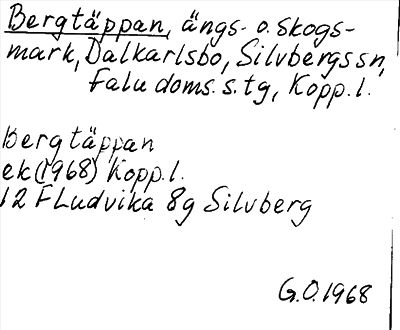 Bergtäppan, ängs- o. skogs-
mark, Dalkarlsbo, Silvbergs sn,
Falu doms. s. tg, Kopp. l.
Bergtäppan
ek (1968) Kopp. l.
12 F Ludvika 8g Silvberg
G.O. 1968